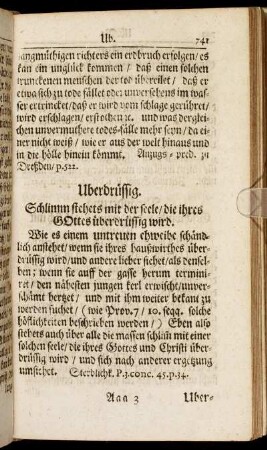 Ub. 741
langmüthigen richters ein erdbruch erfolgen/ es
kan ein unglück kommen / daß einen solchen
trunckenen menschen der tod übereilet / daß er
etwa sich zu tode fället ode: unversehens im was-
ser ertrincket/daß er wird vom schlage gerühret/
wird erschlagen/ erstochen ꝛc. und was dergleis-
chen unvermuthete todes-fälle mehr seyn / da ei-
ner nicht weiß / wie er aus der welt hinaus und
in die hölle hinein kömmt. Anzugs - pred. zu
Dreßden/ p.522.
Uberdrüssig.
Schlimm stehets mit der seele/ die ihres
GOttes überdrüssig wird.
Wie es einem untreuen eheweibe schänd-
lich anstehet/ wenn sie ihres haußwirthes über-
drüssig wird/ und andere lieber siehet/als densel-
ben; wenn sie auff der gasse herum termini-
ret / den nähesten jungen kerl erwischt/unver-
schämt hertzet / und mit ihm weiter bekant zu
werden suchet / ( wie Prov.7 / 10. seqq. solche
höflichkeiten beschrieben werden / ) Eben also
stehets auch über alle die massen schlim mit einer
solchen seele/ die ihres Gottes und Christi über-
drüssig wird / und sich nach anderer ergetzung
umsiehet. Sterblichk. P.3.conc. 45.p.34.
Aaa 3 Uber-